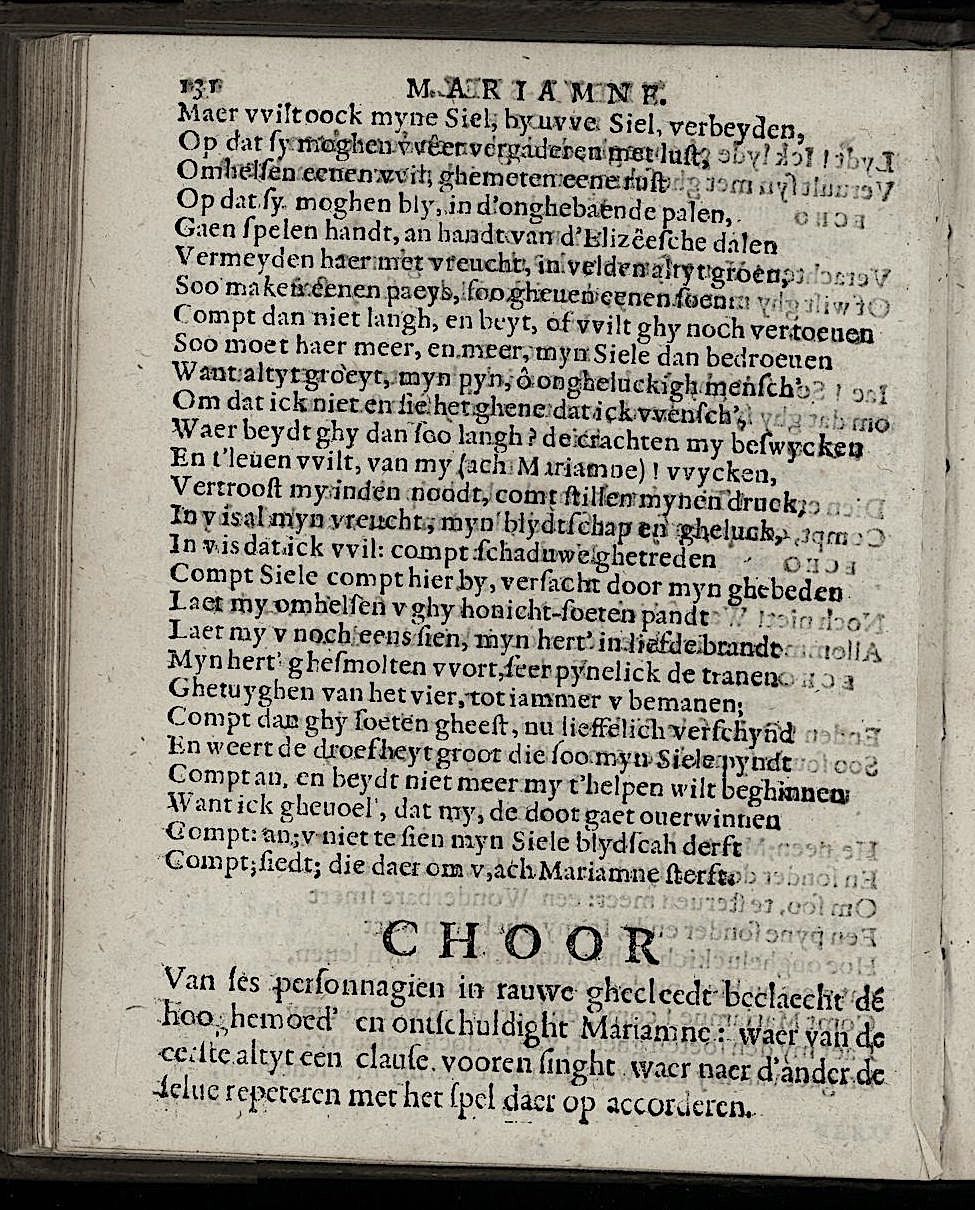 131 MARIAMNE.
Maer vvilt oock myne Siel, by uvve Siel, verbeyden,
Op dat ſy moghen vvêer vergaderen met luſt,
Omhelſen eenen vvil, ghemeten eene ruſt
Op dat ſy moghen bly, in d'onghebaende palen,
Gaen ſpelen handt, an handt van d'Elizêeſche dalen
Vermeyden haer met vreucht, in velden altyt groen,
Soo maken eenen paeys, ſoo gheuen eenen ſoen
Compt dan niet langh, en beyt, of vvilt ghy noch vertoeuen
Soo moet haer meer, en meer, myn Siele dan bedroeuen
Want altyt groeyt, myn pyn, ô ongheluckigh menſch'
Om dat ick niet en ſie het ghene dat ick vvenſch',
Waer beydt ghy dan ſoo langh? de crachten my beſwycken
En t'leuen vvilt, van my (ach Mariamne)! vvycken,
Vertrooſt my inden noodt, comt ſtillen mynen druck,
In v is al myn vreucht, myn blydtſchap en gheluck,
In v is dat ick vvil: compt ſchaduwe ghetreden
Compt Siele compt hier by, verſacht door myn ghebeden
Laet my omhelſen v ghy honicht-ſoeten pandt
Laet my v noch eens ſien, myn hert' in liefde brandt
Myn hert' gheſmolten vvort, ſeer pynelick de tranen
Ghetuyghen van het vier, tot iammer v bemanen;
Compt dan ghy ſoeten gheeſt, nu lieffelich verſchynd
En weert de droefheyt groot die ſoo myn Siele pyndt
Compt an, en beydt niet meer my t'helpen wilt beghinnen
Want ick gheuoel', dat my, de doot gaet ouerwinnen
Compt: an; v niet te ſien myn Siele blydſcah derft
Compt; ſiedt; die daer om v, ach Mariamne ſterft.
CHOOR
Van ſes perſonnagien in rauwe ghecleedt beclaecht dé
hoo ghemoed' en ontſchuldight Mariamne: waer van de
eerſte altyt een clauſe vooren ſinght waer naer d'ander de
ſelue repeteren met het ſpel daer op accorderen.